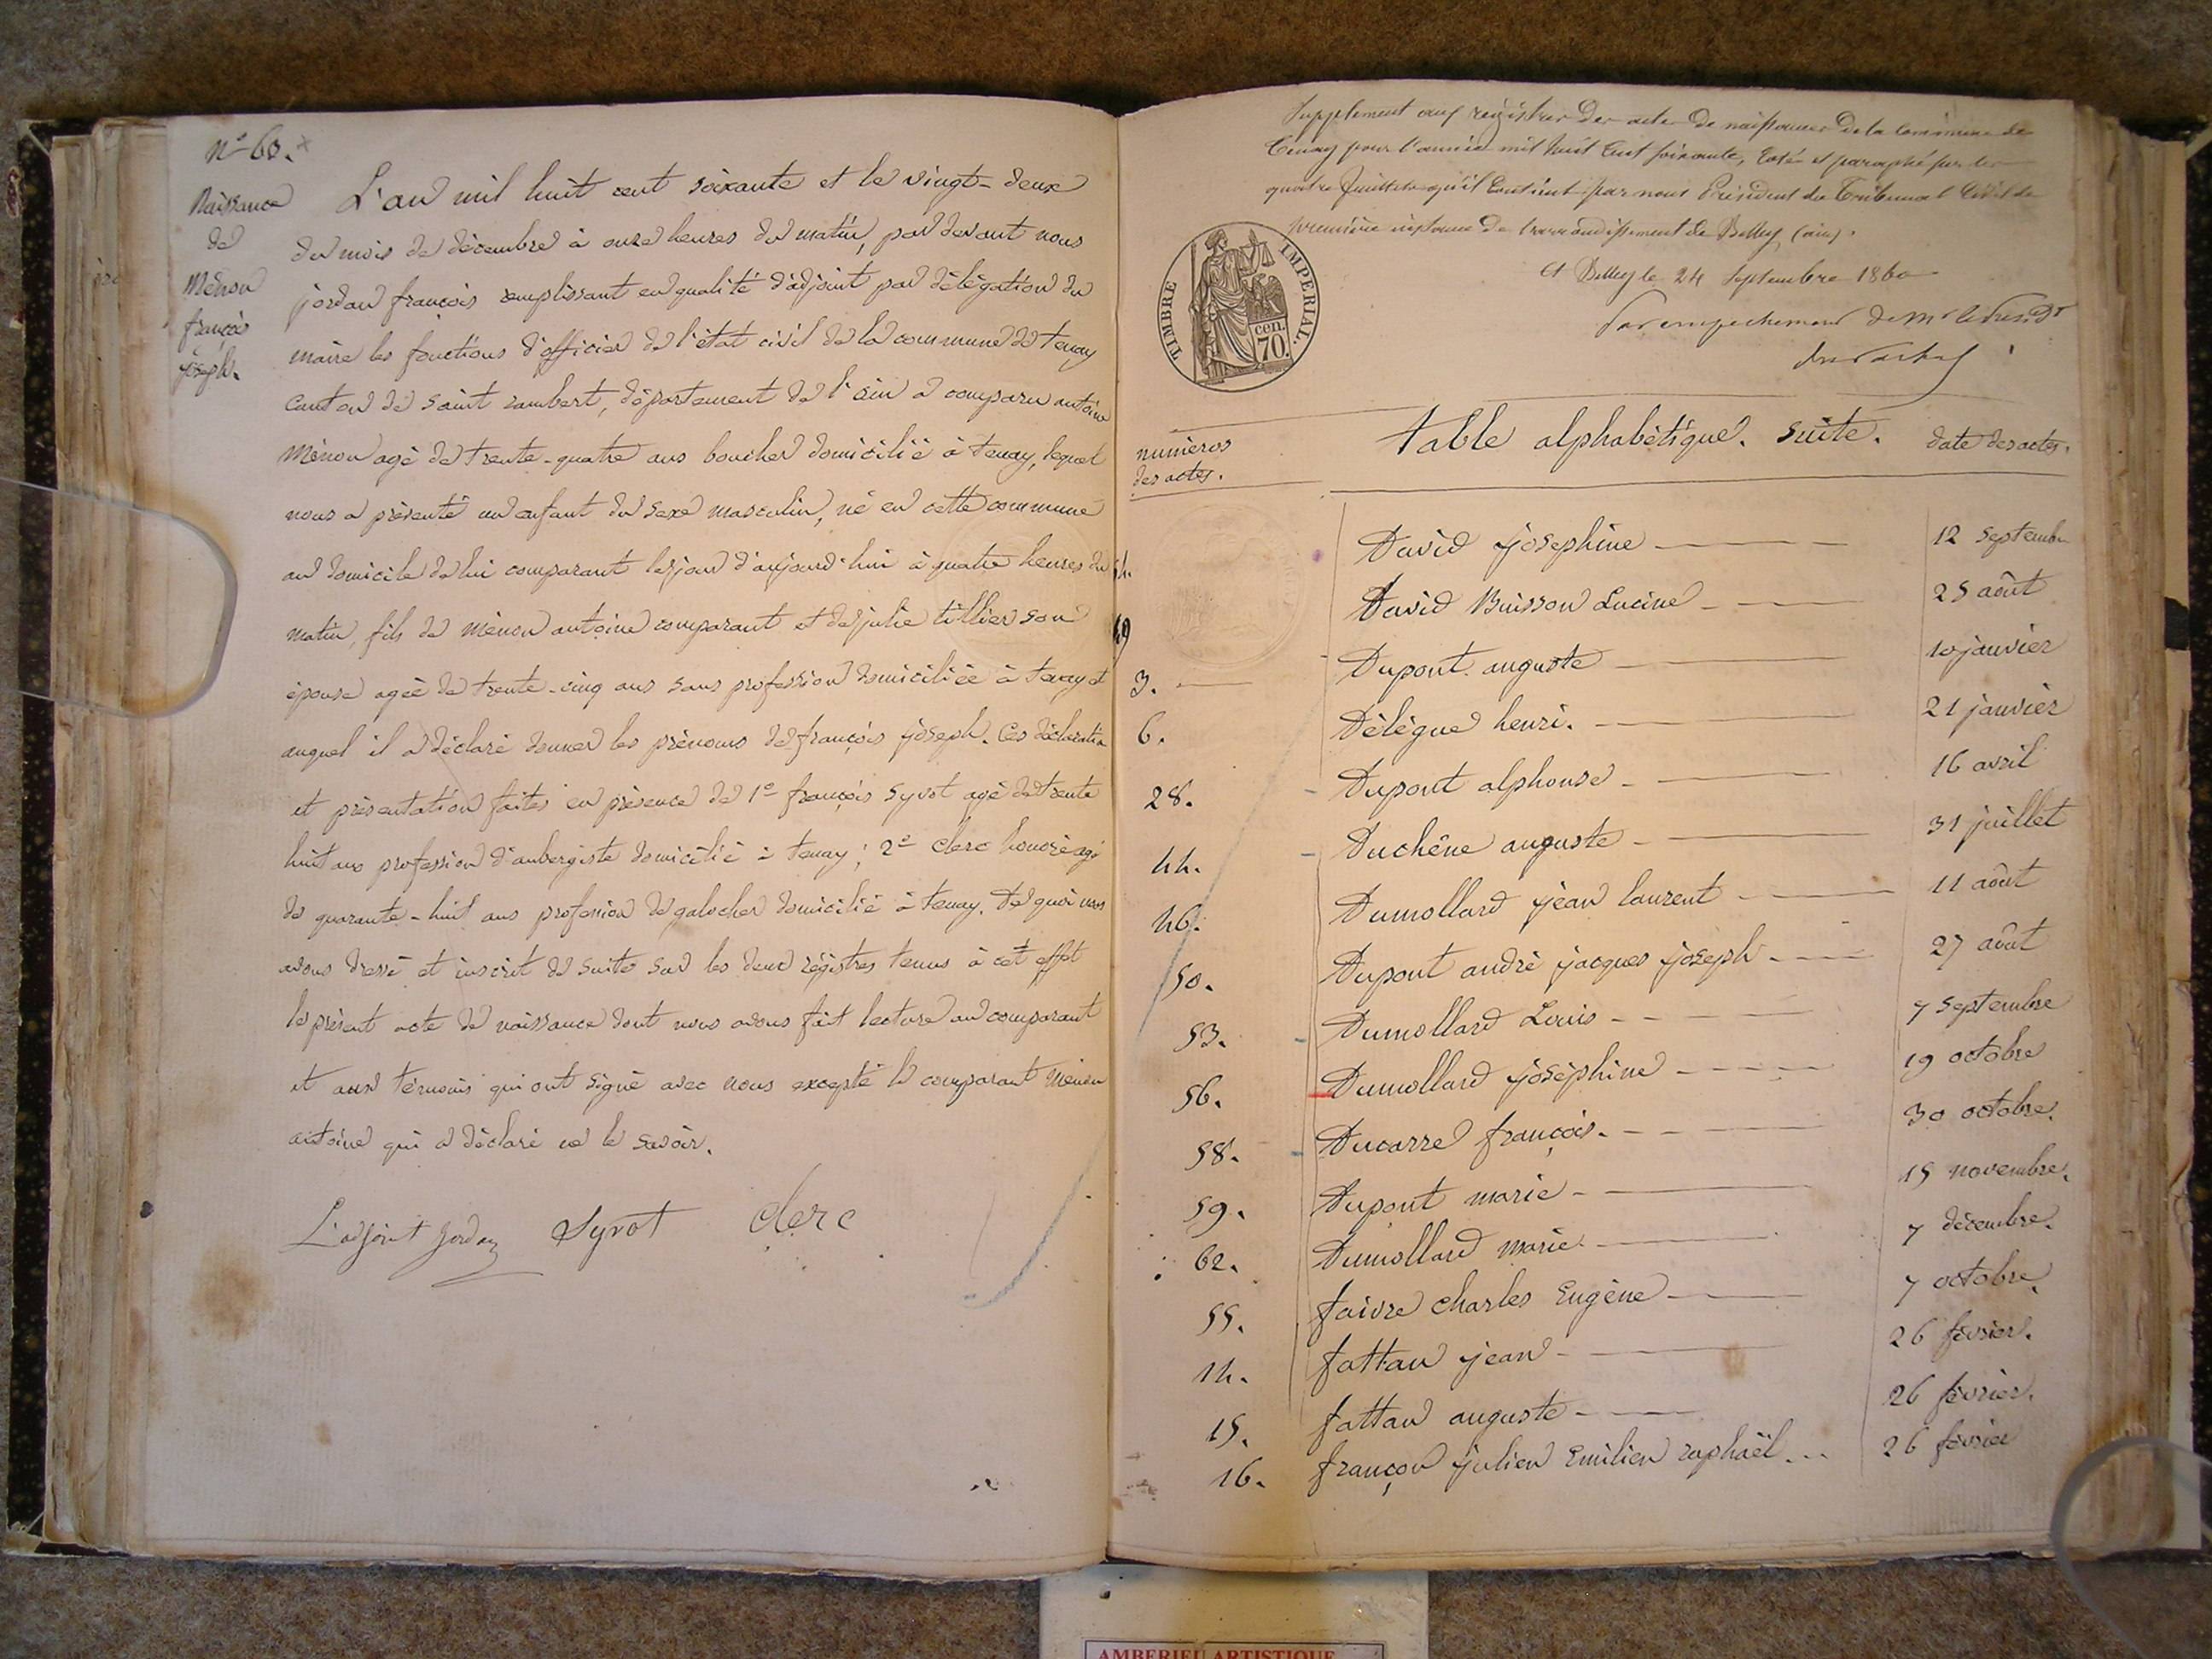 n° 63.
Naissance
de
Mènon
françois
joseph.
L'an mil huit cent soixante et le vingt-deux
du mois de décembre à onze heures du matin, par devant nous
jordan françois remplissant en qualité d'adjoint par délégation du
maire les fonctions d'officier de l'état civil de la commune de tenay
canton de saint rambert, département de l'ain a comparu antoine
Mènon agé de trente-quatre ans boucher domicilié à tenay, lequel
nous a présenté un enfant du sexe masculin, né en cette commune
au domicile de lui comparant le jour d'aujourd'hui à quatre heures du
matin, fils de mènon antoine comparant et de julie tillier son
épouse agée de trente-cinq ans sans profession domiciliée à tenay et
auquel il a déclaré donner les prénoms de françois joseph. Ces déclaration
et présentation faites en présence de 1° françois Syvot agé de trente
huit ans profession d'aubergiste domicilié à tenay; 2° Clerc honoré agé
de quarante-huit ans profession de galocher domicilié à tenay. De quoi nous
avons dressé et inscrit de suite sur les deux régistres tenus à cet effet
le présent acte de naissance dont nous avons fait lecture au comparant
et aux témoins qui ont signé avec nous excepté le comparant Mènon
antoine qui a déclaré ne le savoir.
L'adjoint Jordan Syvot Clerc
Supplement aux registres des actes de naissances de la commune de
Tenay pour l'année mil huit cent soixante, coté et paraphé par les
quatre feuillets qu'il contient par nous Président du Tribunal Civil de
première instance de l'arrondissement de Belley, (ain).
A Belley le 24 Septembre 1860
Par empechement de Mr le Présidt
TIMBRE IMPERIAL.
cen.
70.
numèros
des actes.
table alphabétique. suite.
date des actes.
54. David joséphine 12 septembre
49 David Buisson Lucine 25 août
3. Dupont auguste 10 janvier
6. Délègue henri. 21 janvier
28. Dupont alphonse 16 avril
44. Duchêne auguste 31 juillet
46. Dumollard jean laurent 11 août
50. Dupont andré jacques joseph 27 août
53. Dumollard Louis 7 septembre
56. Dumollard joséphine 19 octobre
58. Ducarre françois. 30 octobre.
59. Dupont marie 15 novembre.
62. Dumollard marie 7 décembre.
55. faivre charles Eugène 7 octobre.
14. fattan jean 26 février.
15. fattan auguste 26 février.
16. françon julien Emilien raphaël 26 février
AMBERIEU ARTISTIQUE